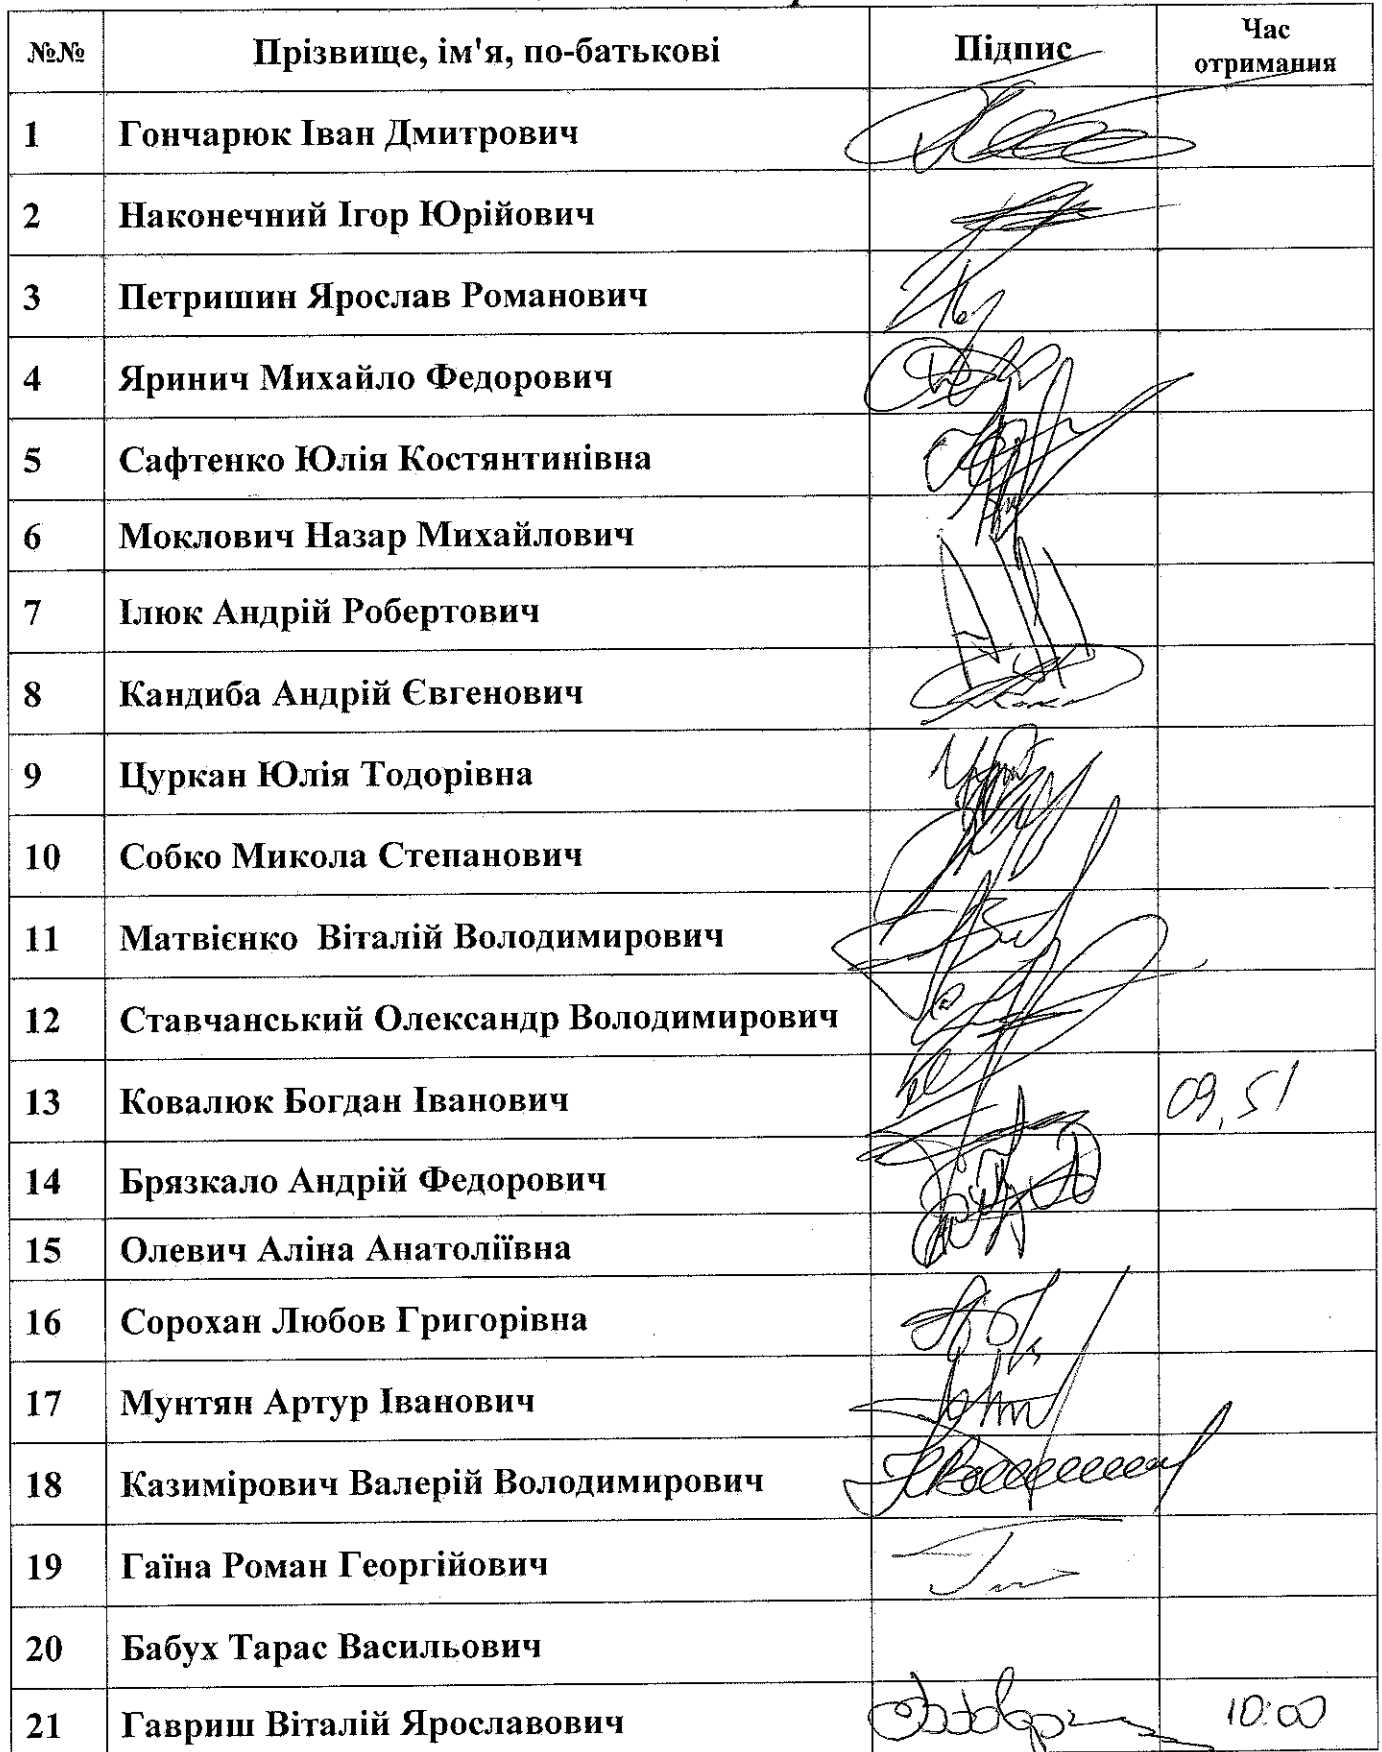 №№ Прізвище, ім'я, по-батькові Підпис Час отримання
1 Гончарюк Іван Дмитрович
2 Наконечний Ігор Юрійович
3 Петришин Ярослав Романович
4 Яринич Михайло Федорович
5 Сафтенко Юлія Костянтинівна
6 Моклович Назар Михайлович
7 Ілюк Андрій Робертович
8 Кандиба Андрій Євгенович
9 Цуркан Юлія Тодорівна
10 Собко Микола Степанович
11 Матвієнко Віталій Володимирович
12 Ставчанський Олександр Володимирович
13 Ковалюк Богдан Іванович 09,51
14 Брязкало Андрій Федорович
15 Олевич Аліна Анатоліївна
16 Сорохан Любов Григорівна
17 Мунтян Артур Іванович
18 Казимірович Валерій Володимирович
19 Гаїна Роман Георгійович
20 Бабух Тарас Васильович
21 Гавриш Віталій Ярославович 10:00